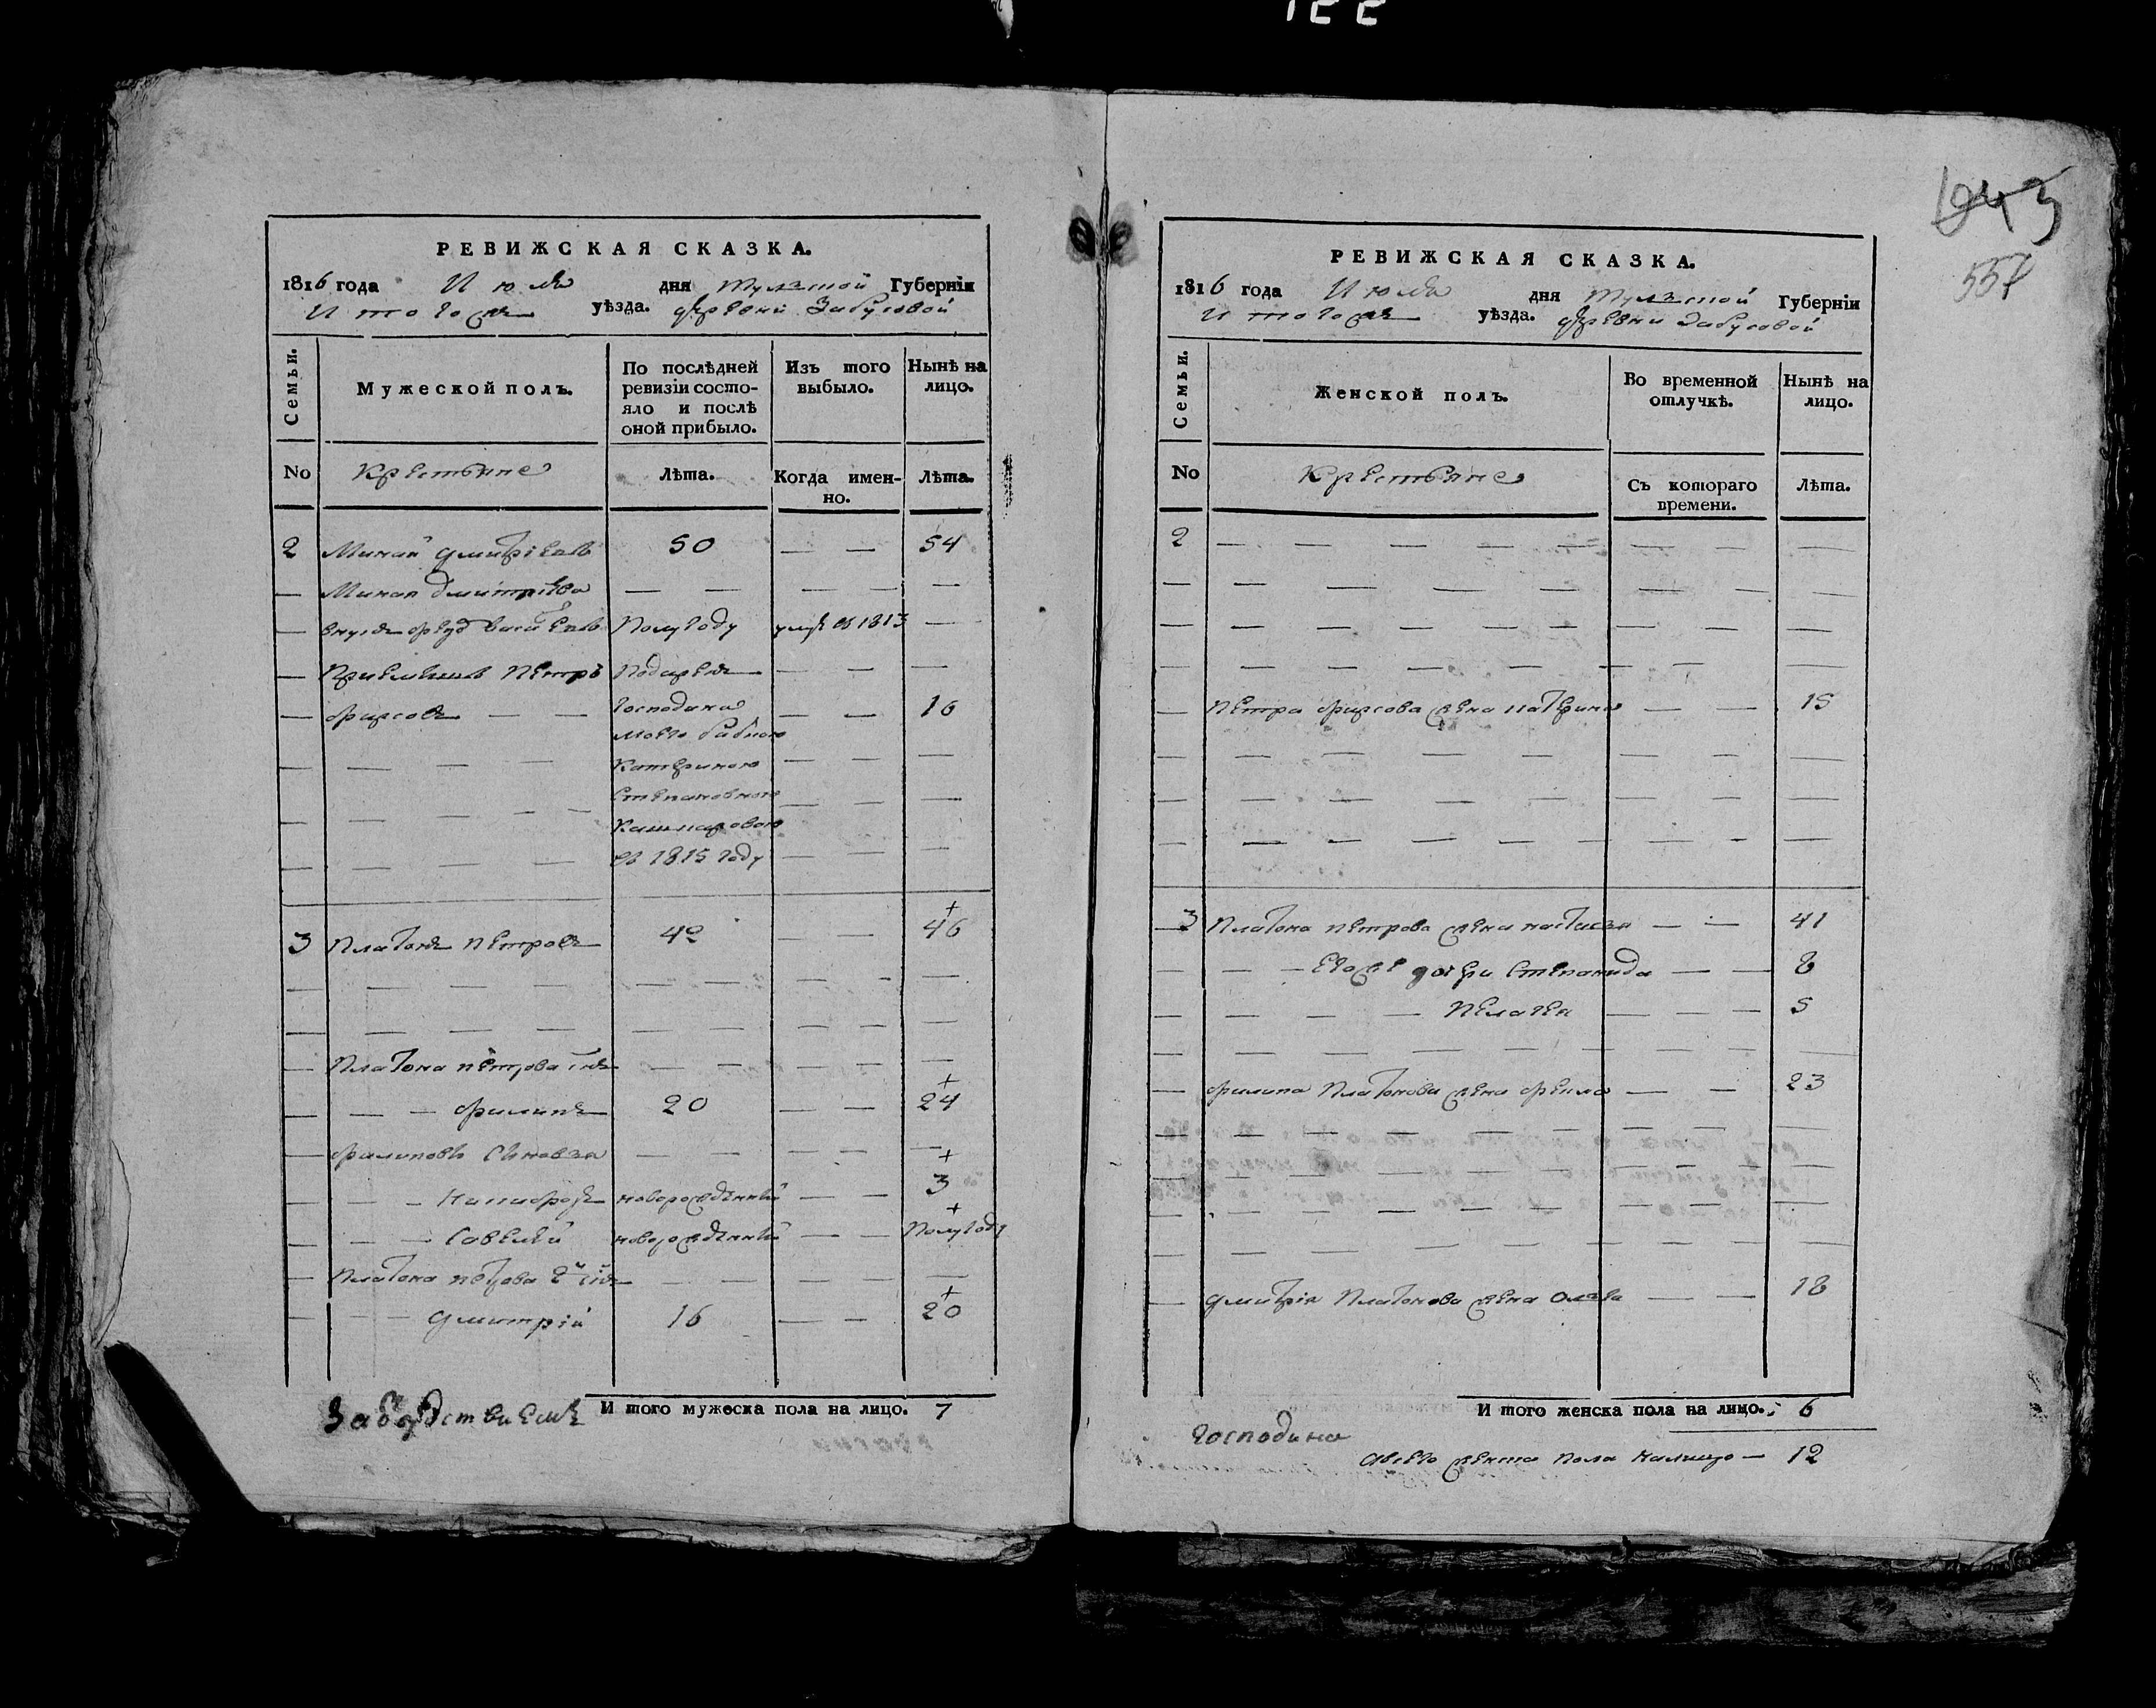 РЕВИЖСКАЯ СКАЗКА.
1816 года Июля дня Тулской Губерніи
И того же уѣзда. деревни Забусовой
Семьи. Мужеской полъ. По послѣдней ревизіи состояло и послѣ оной прибыло. Изъ того выбыло. Нынѣ на лицо.
No Крестьяне Лѣта. Когда именно. Лѣта.
2 Минай Дмитріевъ 50 — — 54
— Миная Дмитріева — — — — —
— внукъ Полугоду умре въ 1813 —
— Приемышъ Петръ Подаренъ — — —
— Фирсовъ — — Господина — — 16
моего бабкою
— — — — Катериною — — —
Степановною — — —
— — — — Кашкаровою
— — — — въ 1815 году — — —
3 Платонъ Петровъ 42 — — 46
— — — — — — — — — — —
— — — — — — — — — — —
— Платона Петрова сынъ — — — — — —
— — — Филипъ 20 — — 24
— Филиповы сыновья — — — — — —
— — — Никифоръ новорожденный — — 3
— — — Савелий новорожденный — — Полугоду
— Платона Петрова 2й сынъ — — — — —
— — — Дмитрій 16 — — 20
И того мужеска пола на лицо. 7
РЕВИЖСКАЯ СКАЗКА.
1816 года Июля дня Тулской Губерніи
И того же уѣзда. деревни Забусовой
Семьи. Женской полъ. Во временной отлучкѣ. Нынѣ на лицо.
No Крестьяне Съ котораго времени. Лѣта.
2 — — — — — — — —
— — — — — — — — —
— — — — — — — — —
— — — — — — — — —
— Петра Фирсова жена Катерина — — 15
— — — — — — — —
— — — — — — — —
— — — — — — — —
3 Платона Петрова жена Настасья — — 41
— — — Его же дочери Степанида — — 8
— — — — Пелагея — — — 5
— — — — — — — — —
— Филипа Платонова жена — — 23
— — — — — — — —
— — — — — — — —
— — — — — — — —
— — — — — — — —
— Дмитрія Платонова жена — — 18
И того женска пола на лицо. 6
Господина
А всего женска пола налицо — 12
557